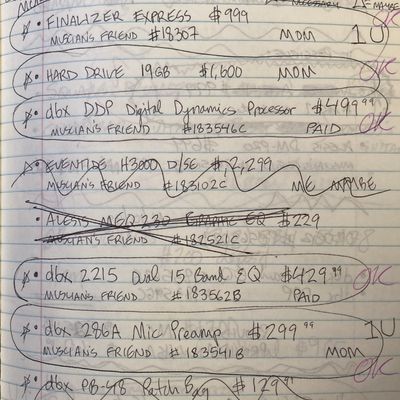 NECESSARY 1=MAYBE
• FINALIZER EXPRESS $999 OK
MUSCIANS FRIEND #18307 MOM 1U
• HARD DRIVE 19GB $1,600 MOM OK
• dbx DDP Digital Dynamics Processor $499.99 OK
MUSCIANS FRIEND #183546C PAID
• EVENTIDE H3000 D/SE $2,299
MUSCIANS FRIEND #183102C ME MAYBE
• ALESIS MEQ 230 GRAPHIC EQ $229
MUSCIANS FRIEND #182521C
• dbx 2215 Dual 15 Band EQ $429.99 OK
MUSCIANS FRIEND #183562B PAID
• dbx 286A Mic Preamp $299.99 1U
MUSCIANS FRIEND #183541B MOM OK
• dbx PB-48 Patch Bay $129.99